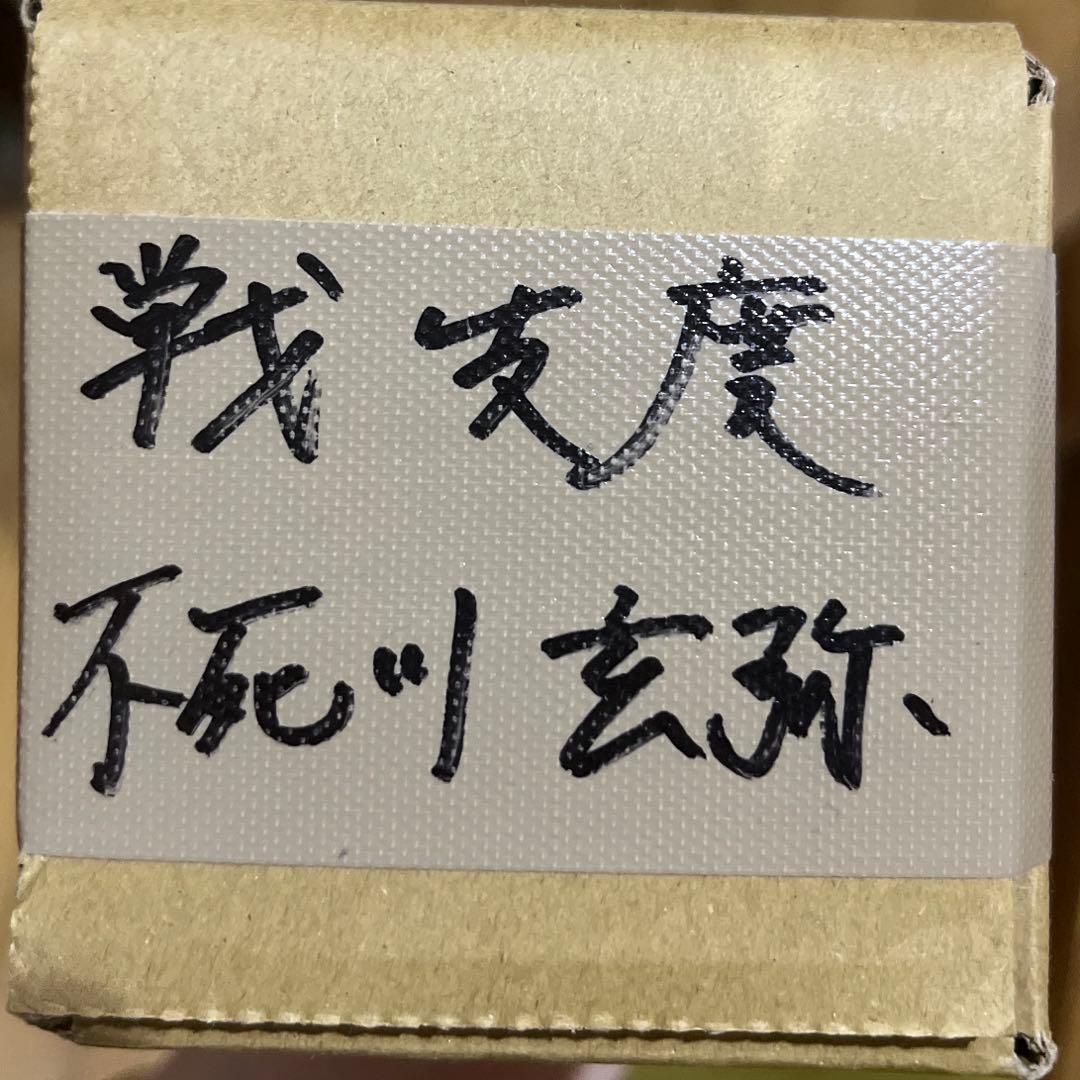 戦支度
不死川玄弥